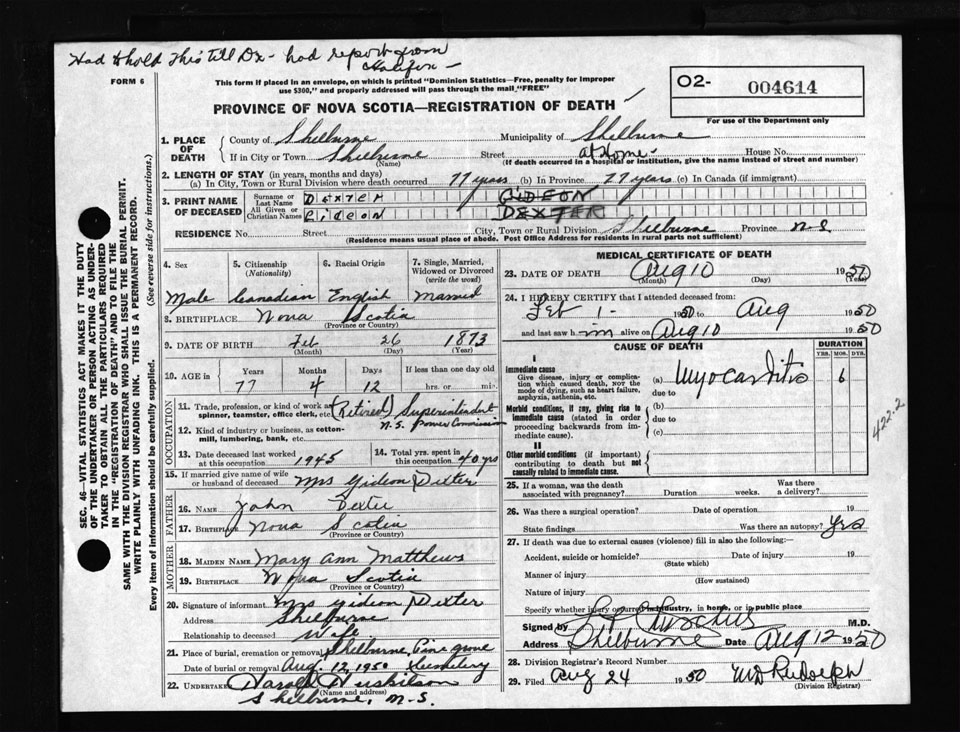 Had to hold This till Dr - had report from
Halifax -
FORM 6
This form if placed in an envelope, on which is printed "Dominion Statistics—Free, penalty for improper
use $300," and properly addressed will pass through the mail "FREE"
O2- 004614
For use of the Department only
PROVINCE OF NOVA SCOTIA—REGISTRATION OF DEATH
1. PLACE OF DEATH
County of Shelburne Municipality of Shelburne
If in City or Town Shelburne (Name) Street at Home - House No.
(If death occurred in a hospital or institution, give the name instead of street and number)
2. LENGTH OF STAY (in years, months and days)
(a) In City, Town or Rural Division where death occurred 77 years (b) In Province 77 years (c) In Canada (if immigrant)
3. PRINT NAME OF DECEASED
Surname or Last Name DEXTER GIDEON
All Given or Christian Names GIDEON DEXTER
RESIDENCE No. Street City, Town or Rural Division Shelburne Province N-S
(Residence means usual place of abode. Post Office Address for residents in rural parts not sufficient)
4. Sex
5. Citizenship (Nationality)
6. Racial Origin
7. Single, Married, Widowed or Divorced (write the word)
Male Canadian English Married
8. BIRTHPLACE Nova Scotia
(Province or Country)
9. DATE OF BIRTH Feb 26 1873
(Month) (Day) (Year)
10. AGE in Years Months Days If less than one day old
77 4 12 hrs. or min.
OCCUPATION
11. Trade, profession, or kind of work as spinner, teamster, office clerk, etc. (Retired) Superintendent
12. Kind of industry or business, as cotton-mill, lumbering, bank, etc. N.S. Power Commission
13. Date deceased last worked at this occupation 1945
14. Total yrs. spent in this occupation 40 yrs
15. If married give name of wife or husband of deceased Mrs Gideon Dexter
FATHER
16. NAME John Dexter
17. BIRTHPLACE Nova Scotia
(Province or Country)
MOTHER
18. MAIDEN NAME Mary Ann Matthews
19. BIRTHPLACE Nova Scotia
(Province or Country)
20. Signature of informant Mrs Gideon Dexter
Address Shelburne
Relationship to deceased Wife
21. Place of burial, cremation or removal Shelburne, Pine grove
Date of burial or removal Aug. 12, 1950 Cemetery
22. UNDERTAKER Harold Huskilson
(Name and address)
Shelburne, N.S.
MEDICAL CERTIFICATE OF DEATH
23. DATE OF DEATH Aug 10 1950
(Month) (Day) (Year)
24. I HEREBY CERTIFY that I attended deceased from:
Feb 1 - 1950 to Aug 1950
and last saw him alive on Aug 10 1950
CAUSE OF DEATH DURATION
YRS. MOS. DYS.
I
Immediate cause
Give disease, injury or complication which caused death, NOT the mode of dying, such as heart failure, asphyxia, asthenia, etc.
(a) Myocarditis 6
due to
Morbid conditions, if any, giving rise to immediate cause (stated in order proceeding backwards from immediate cause).
(b)
due to
(c)
II
Other morbid conditions (if important) contributing to death but not causally related to immediate cause.
422.2
25. If a woman, was the death associated with pregnancy? Duration weeks. Was there a delivery?
26. Was there a surgical operation? Date of operation 19
State findings Was there an autopsy? Yes
27. If death was due to external causes (violence) fill in also the following:—
Accident, suicide or homicide? Date of injury 19
(State which)
Manner of injury
(How sustained)
Nature of injury
Specify whether injury occurred in industry, in home, or in public place
Signed by M.D.
Address Shelburne Date Aug 12 1950
28. Division Registrar's Record Number
29. Filed Aug 24 1950 MD Rudolph
(Division Registrar)
SEC. 46—VITAL STATISTICS ACT MAKES IT THE DUTY
OF THE UNDERTAKER OR PERSON ACTING AS UNDER-
TAKER TO OBTAIN ALL THE PARTICULARS REQUIRED
IN THE "REGISTRATION OF DEATH" AND TO FILE THE
SAME WITH THE DIVISION REGISTRAR WHO SHALL ISSUE THE BURIAL PERMIT.
WRITE PLAINLY WITH UNFADING INK. THIS IS A PERMANENT RECORD.
Every item of information should be carefully supplied. (See reverse side for instructions.)